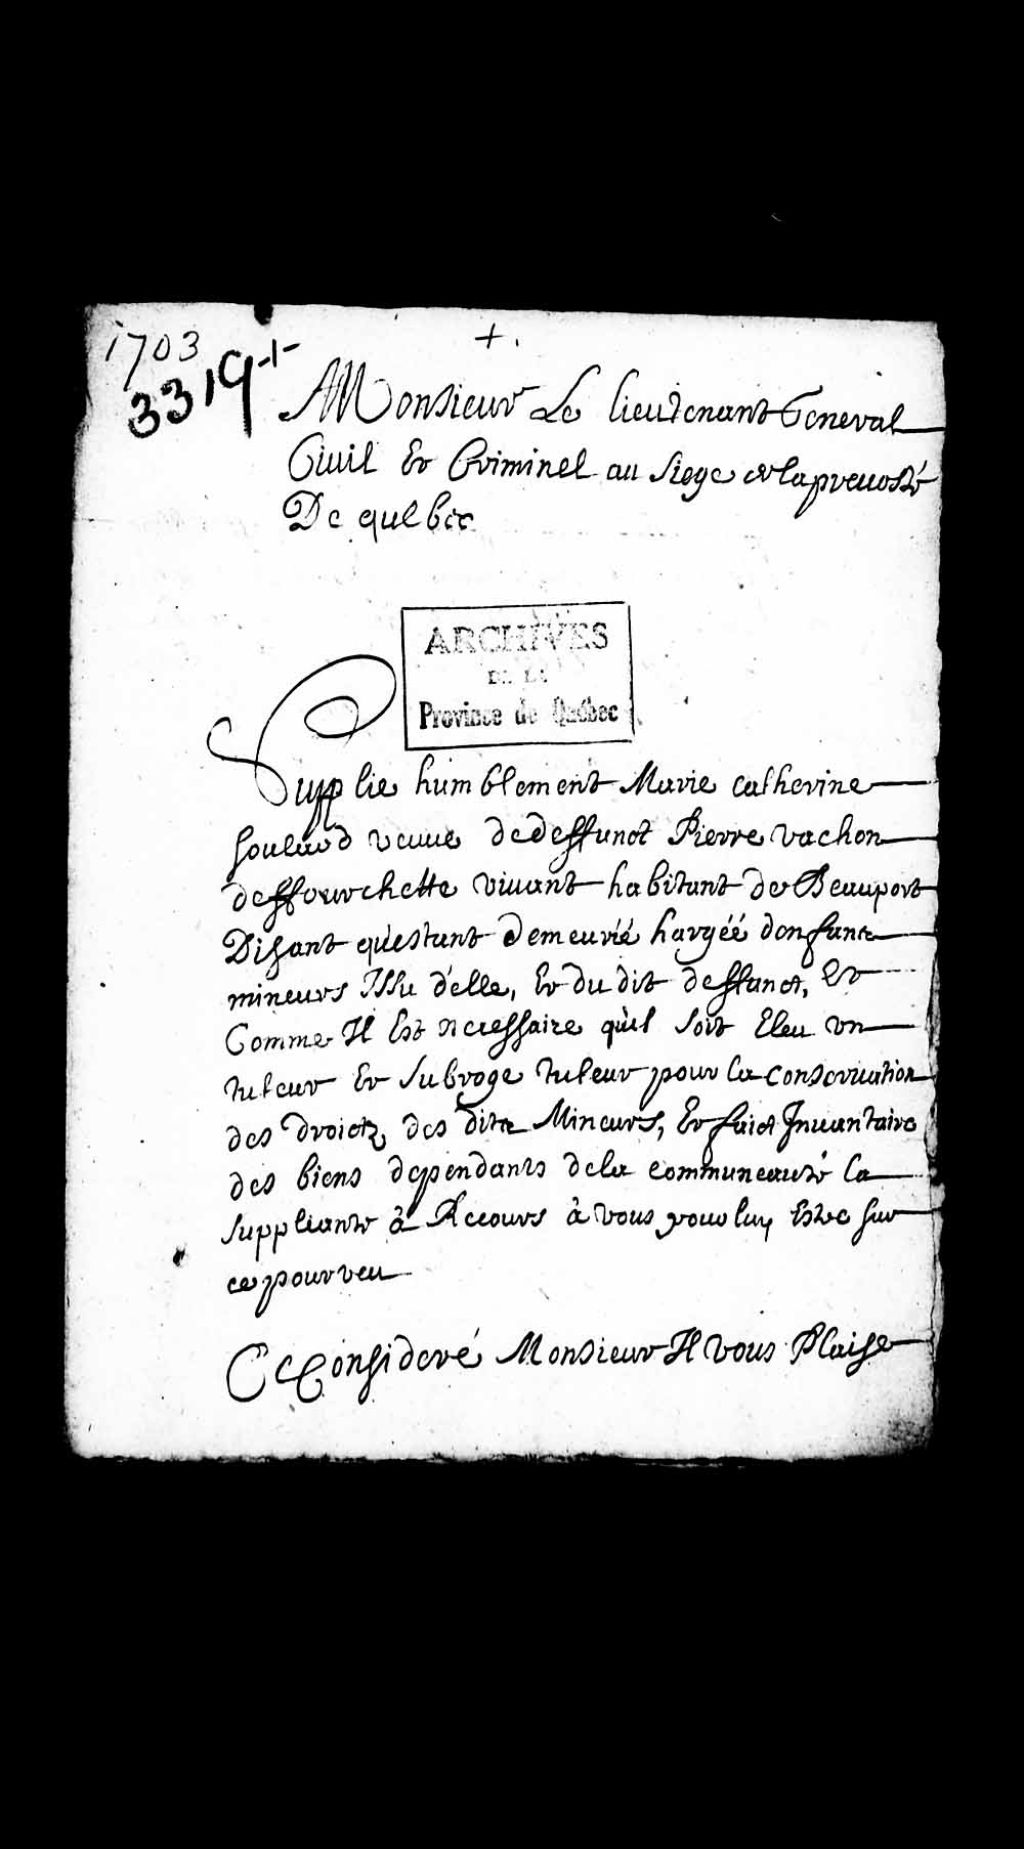 1703
+.
3319 +
AMonsieur Le lieutenant General
Civil Et Criminel au siege de la prevosté
De quebec
ARCHIVES
DE LA
Province de Québec
Supplie humblement Marie catherine
soulard veuve de deffunct Pierre vachon
deffourchette vivant habitant de Beauport
Disant qu'estant demeurée chargée d'enfants
mineurs Issu d'elle, Et du dit deffunct, Et
Comme Il Est necessaire qu'il soit Eleu un
tuteur Et subroge tuteur pour la conservation
des droictz des dits Mineurs, Et faict Inventaire
des biens dependants de la communeauté la
suppliante à Recours à vous pour luy Estre sur
ce pourveu
Ce Consideré Monsieur Il vous Plaise